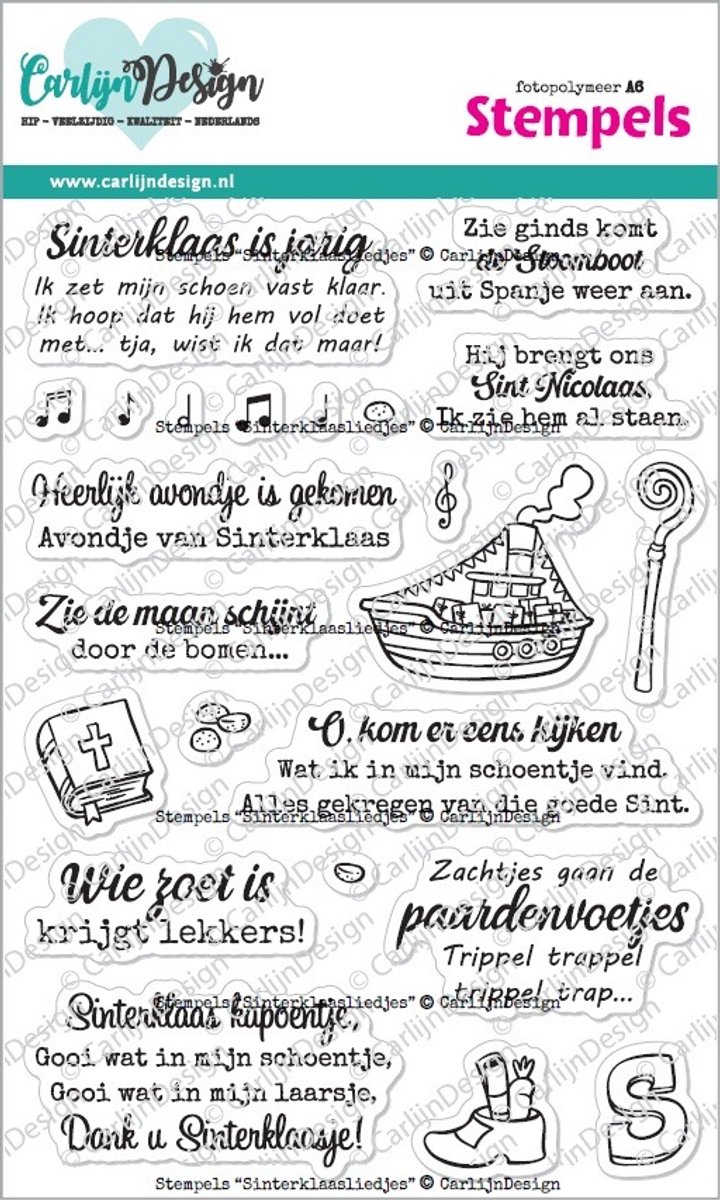 Carlijn Design
HIP – VEELZIJDIG – KWALITEIT – NEDERLANDS
fotopolymeer A6
Stempels
www.carlijndesign.nl
Sinterklaas is jarig
Ik zet mijn schoen vast klaar.
Ik hoop dat hij hem vol doet
met... tja, wist ik dat maar!
Zie ginds komt
de Stoomboot
uit Spanje weer aan.
Stempels "Sinterklaasliedjes" © CarlijnDesign
Hij brengt ons
Sint Nicolaas,
Ik zie hem al staan.
Stempels "Sinterklaasliedjes" © CarlijnDesign
Heerlijk avondje is gekomen
Avondje van Sinterklaas
Zie de maan schijnt
door de bomen...
Stempels "Sinterklaasliedjes" © CarlijnDesign
O, kom er eens kijken
Wat ik in mijn schoentje vind.
Alles gekregen van die goede Sint.
Stempels "Sinterklaasliedjes" © CarlijnDesign
Wie zoet is
krijgt lekkers!
Zachtjes gaan de
paardenvoetjes
Trippel trappel
trippel trap...
Stempels "Sinterklaasliedjes" © CarlijnDesign
Sinterklaas kapoentje,
Gooi wat in mijn schoentje,
Gooi wat in mijn laarsje,
Dank u Sinterklaasje!
S
Stempels "Sinterklaasliedjes" © CarlijnDesign
© CarlijnDesign